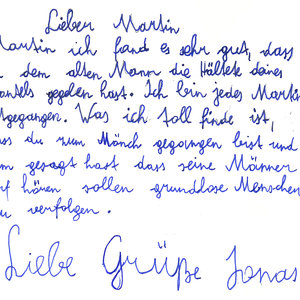 Lieber Martin
Martin ich fand es sehr gut, dass
dem alten Mann die Hälfte deines
antels gegeben hast. Ich bin jedes Martin
tgegangen. Was ich toll finde ist,
ss du zum Mönch gegangen bist und
m gesagt hast dass seine Männer
f hören sollen grundlose Menschen
u verfolgen.
Liebe Grüße Jonas